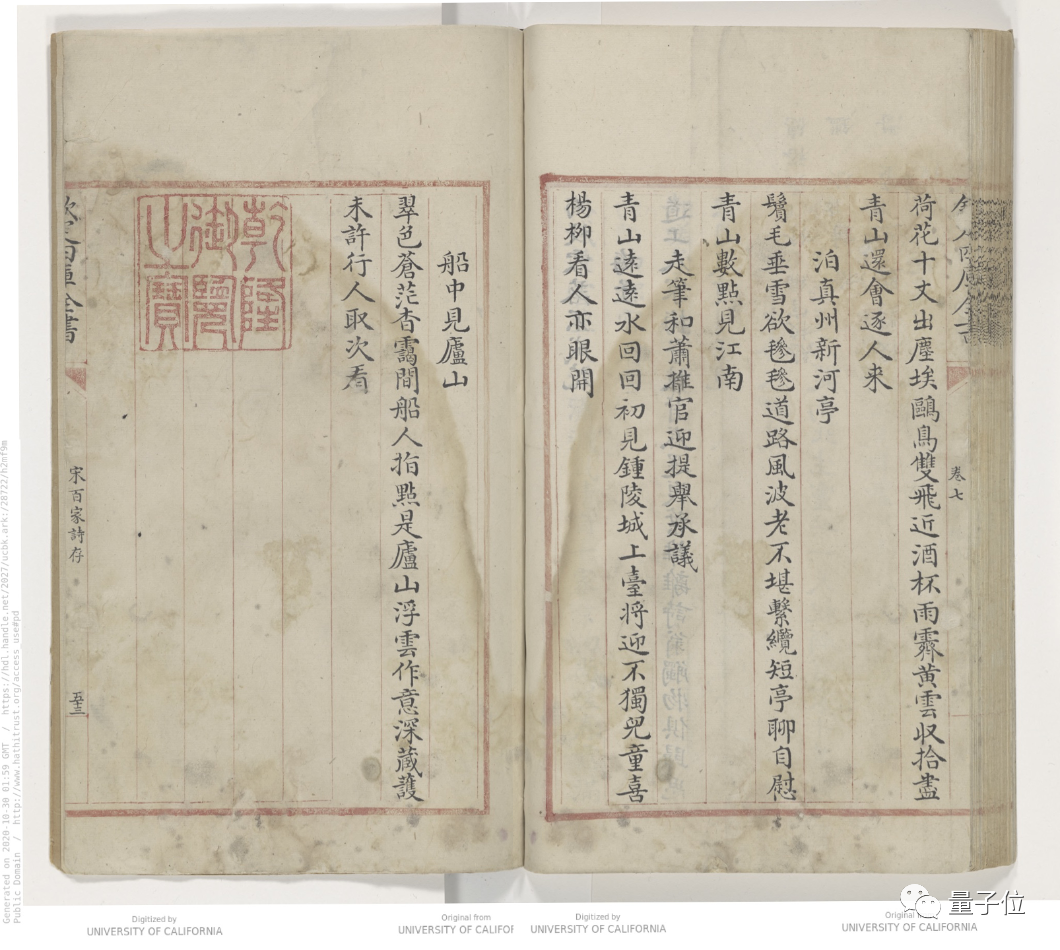 荷花十丈出塵埃鷗鳥雙飛近酒杯雨霽黄雲収拾盡
青山還會逐人来
泊真州新河亭
鬢毛垂雪欲毿毿道路風波老不堪繫纜短亭聊自慰
青山數點見江南
走筆和蕭推官迎提舉承議
青山遠遠水回回初見鍾陵城上臺将迎不獨兒童喜
楊柳看人亦眼開
卷七
船中見廬山
翠色蒼茫杳靄間船人指點是廬山浮雲作意深藏護
未許行人取次看
乾隆
御覽
之寶
全書
宋百家詩存
五十三
Generated on 2020-10-30 01:59 GMT / https://hdl.handle.net/2027/ucbk.ark:/28722/h2mf9m
Public Domain / http://www.hathitrust.org/access_use#pd
Digitized by
UNIVERSITY OF CALIFORNIA
Original from
UNIVERSITY OF CALIF
Digitized by
UNIVERSITY OF CALIFORNIA
Original
UNIVERSITY OF CALIFORNIA
量子位